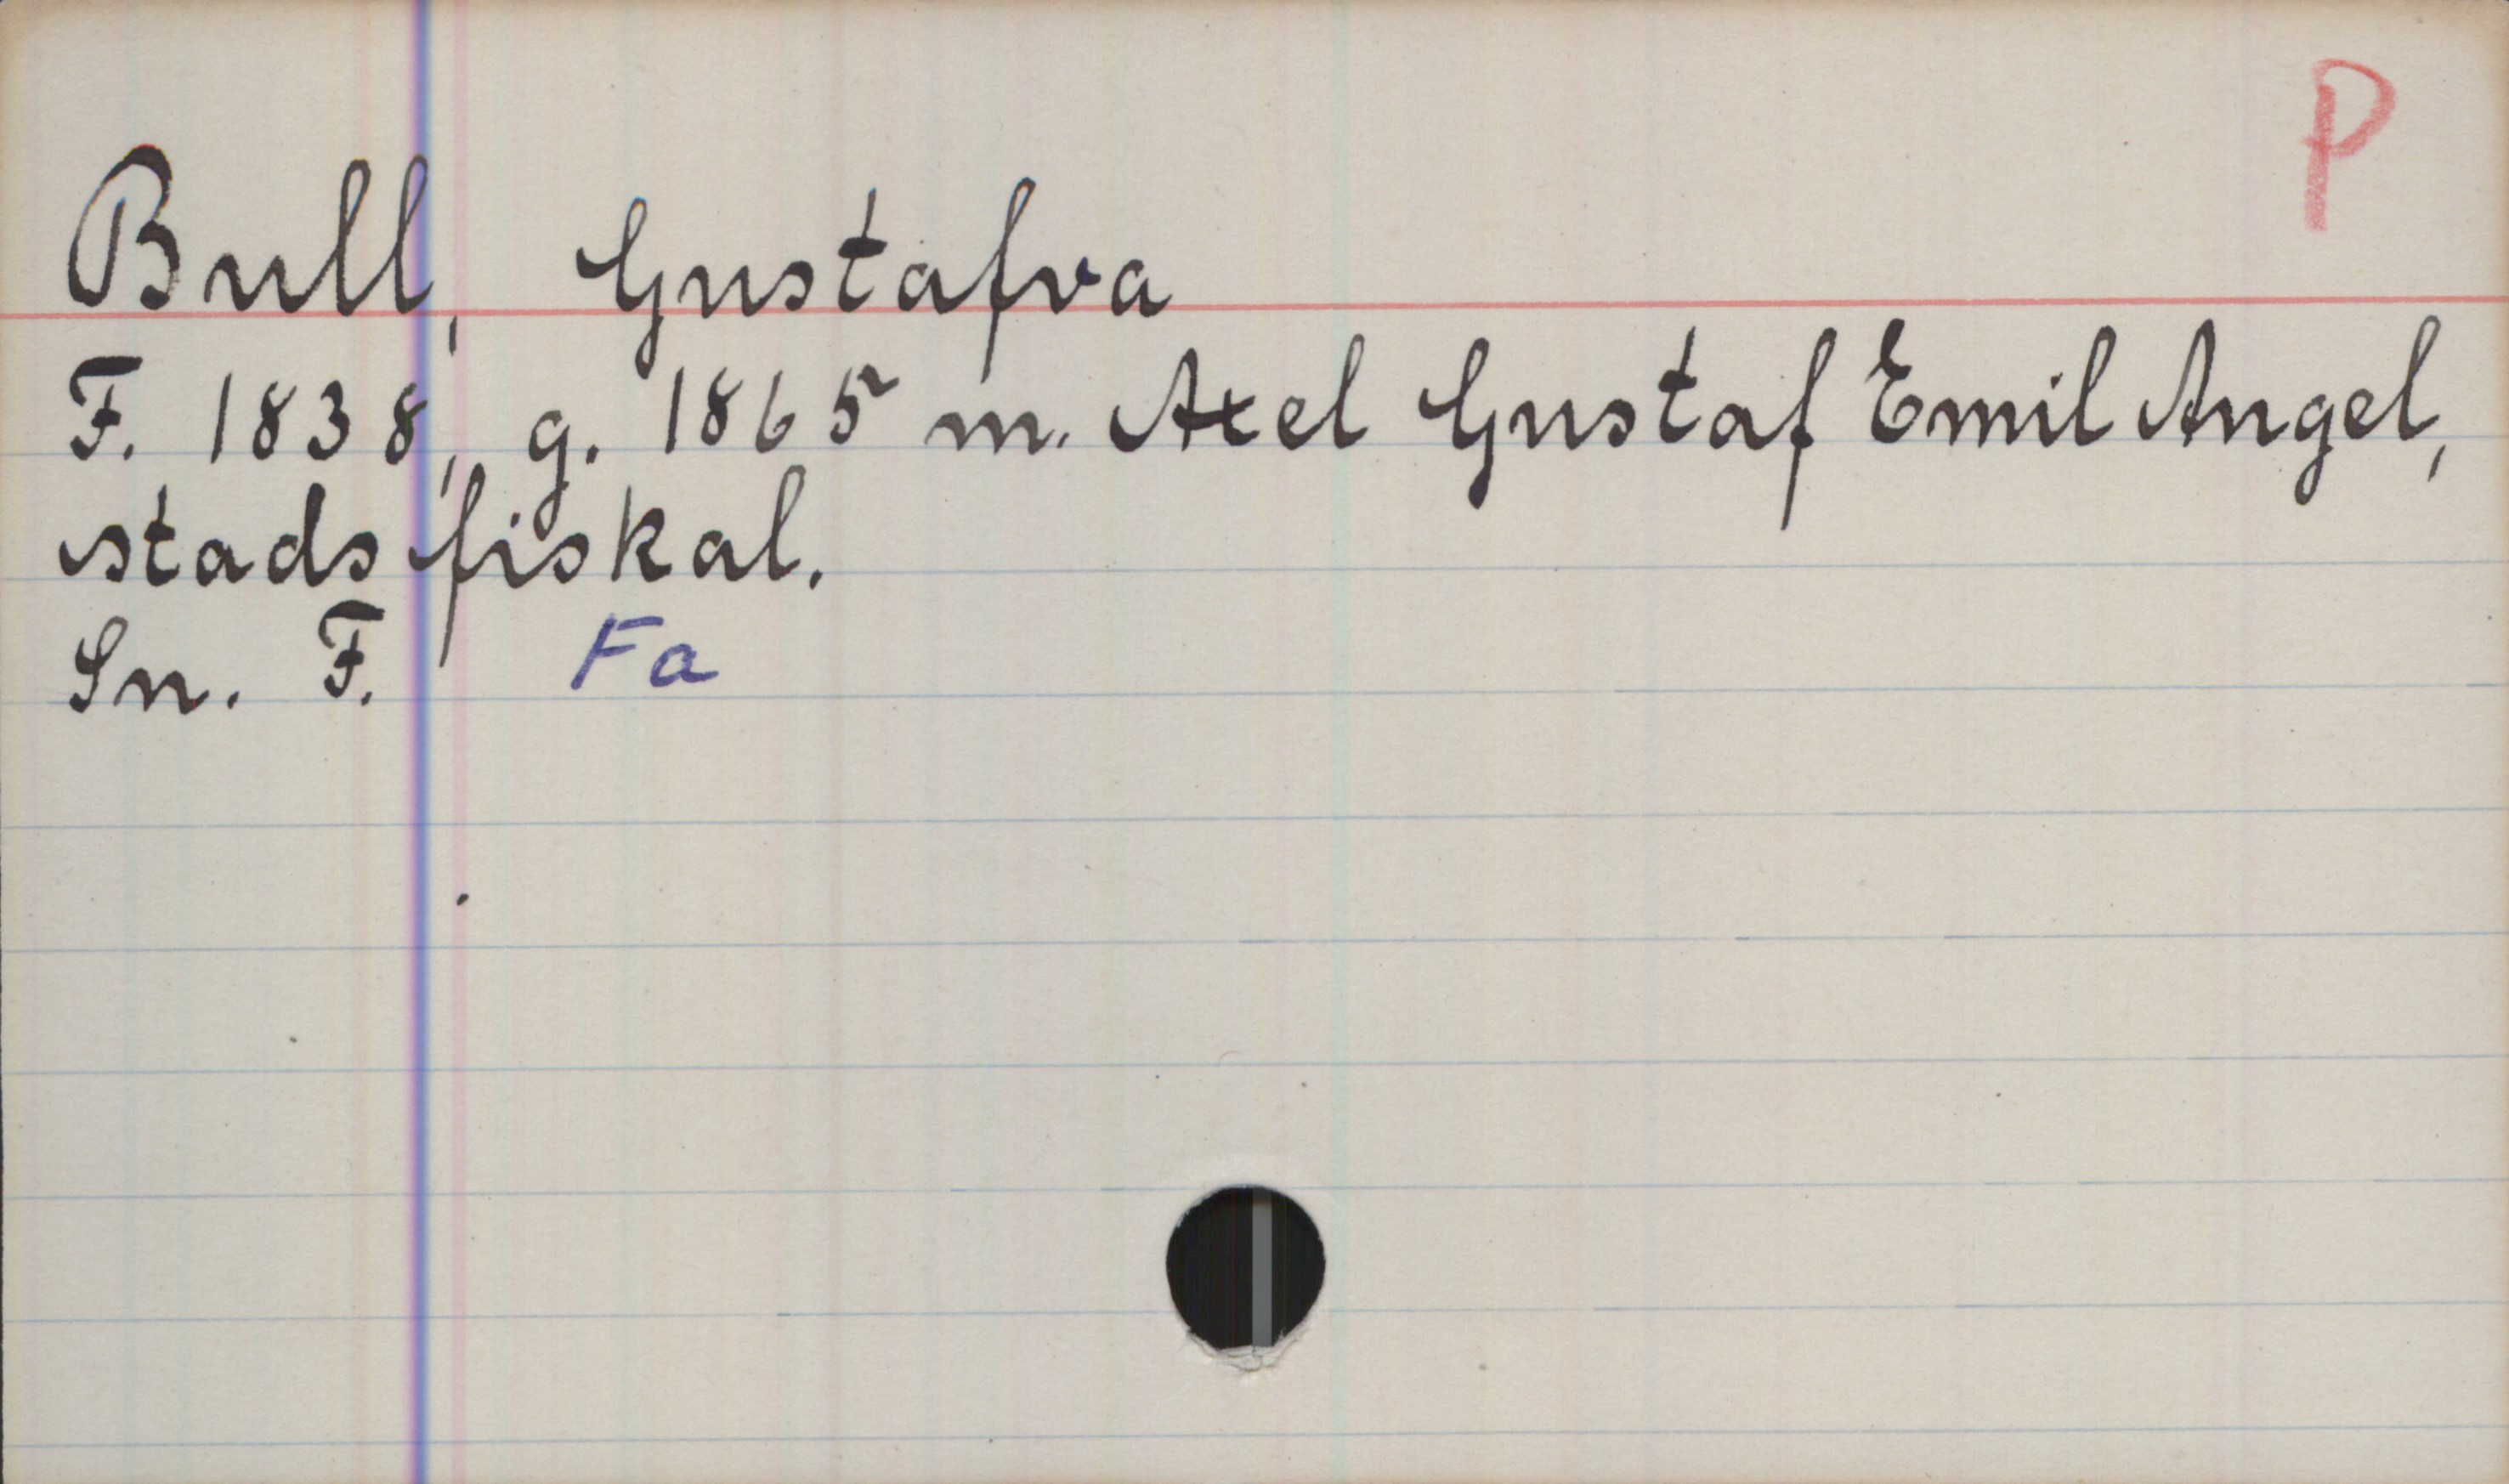 P
Bull, Gustafva
F. 1838, g. 1865 m. Axel Gustaf Emil Angel,
stadsfiskal.
Sn. F. Fa